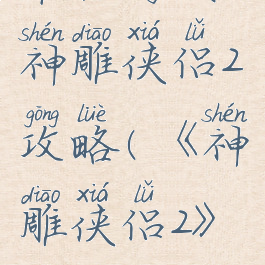 shén diāo xiá lǚ
神雕侠侣2
gōng lüè shén
攻略(《神
diāo xiá lǚ
雕侠侣2》